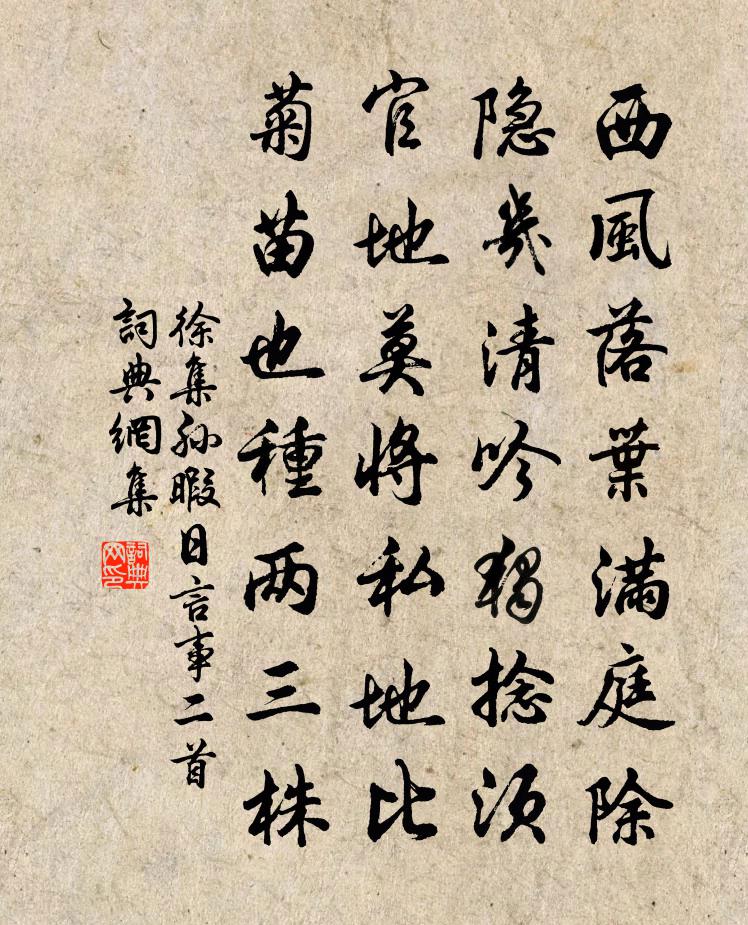 西風落葉滿庭除
隐幾清吟獨捻须
官地莫將私地比
菊苗也種两三株
徐集孙暇日言事二首
詞典網集
詞典网印